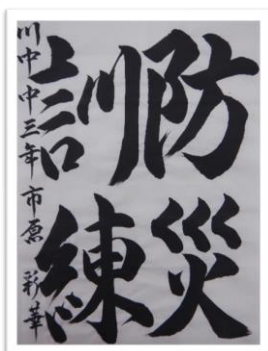 防災
訓練
川中中三年 市原 彩華